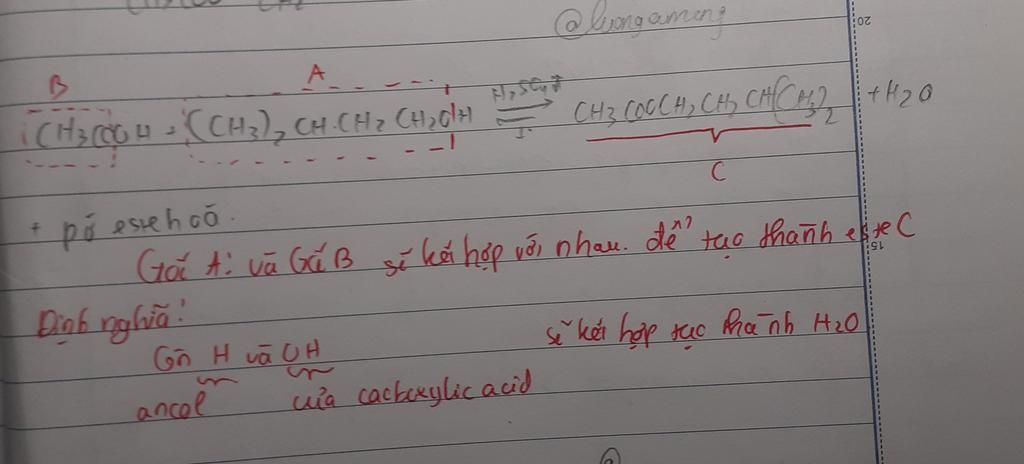 @luongameng
B
A
CH3COOH + (CH3)2CH.CH2CH2OH ⇌ CH3COOCH2CH2CH(CH3)2 + H2O
H2SO4đ
C
+ pứ esteh hoá.
Gốc A: và Gốc B sẽ kết hợp với nhau. để tạo thành este C
Định nghĩa:
Còn H và OH sẽ kết hợp tạo thành H2O
ancol của cacboxylic acid
20
15